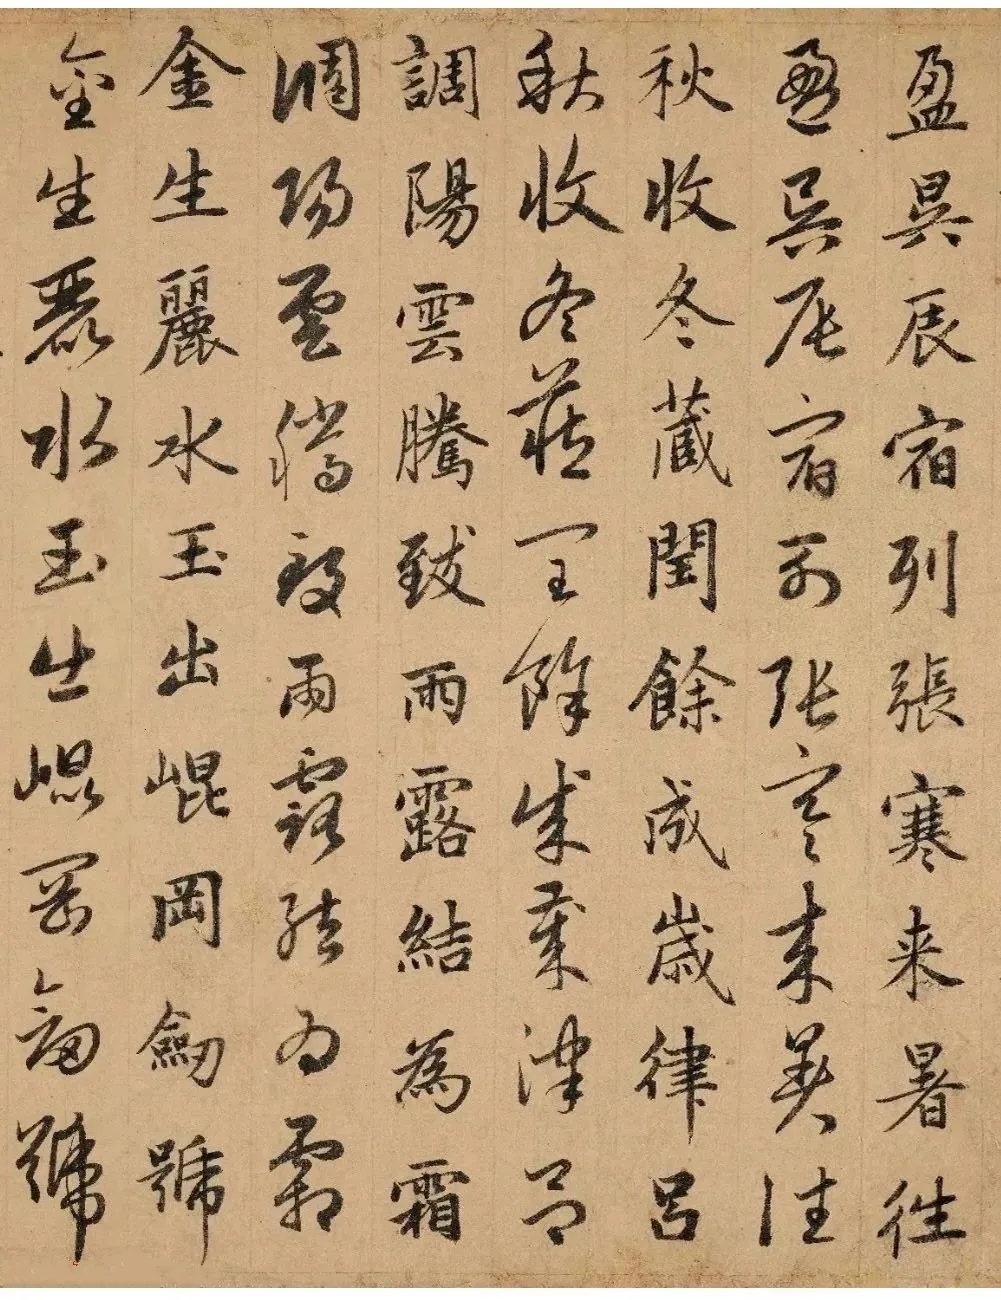 盈昃辰宿列張寒来暑徃
盈昃辰宿列張寒来暑往
秋收冬蔵閏餘成歳律呂
秋收冬藏閏餘成歲律呂
調陽雲騰致雨露結為霜
調陽雲騰致雨露結為霜
金生麗水玉出崐岡劒號
金生麗水玉出崐岡劒號